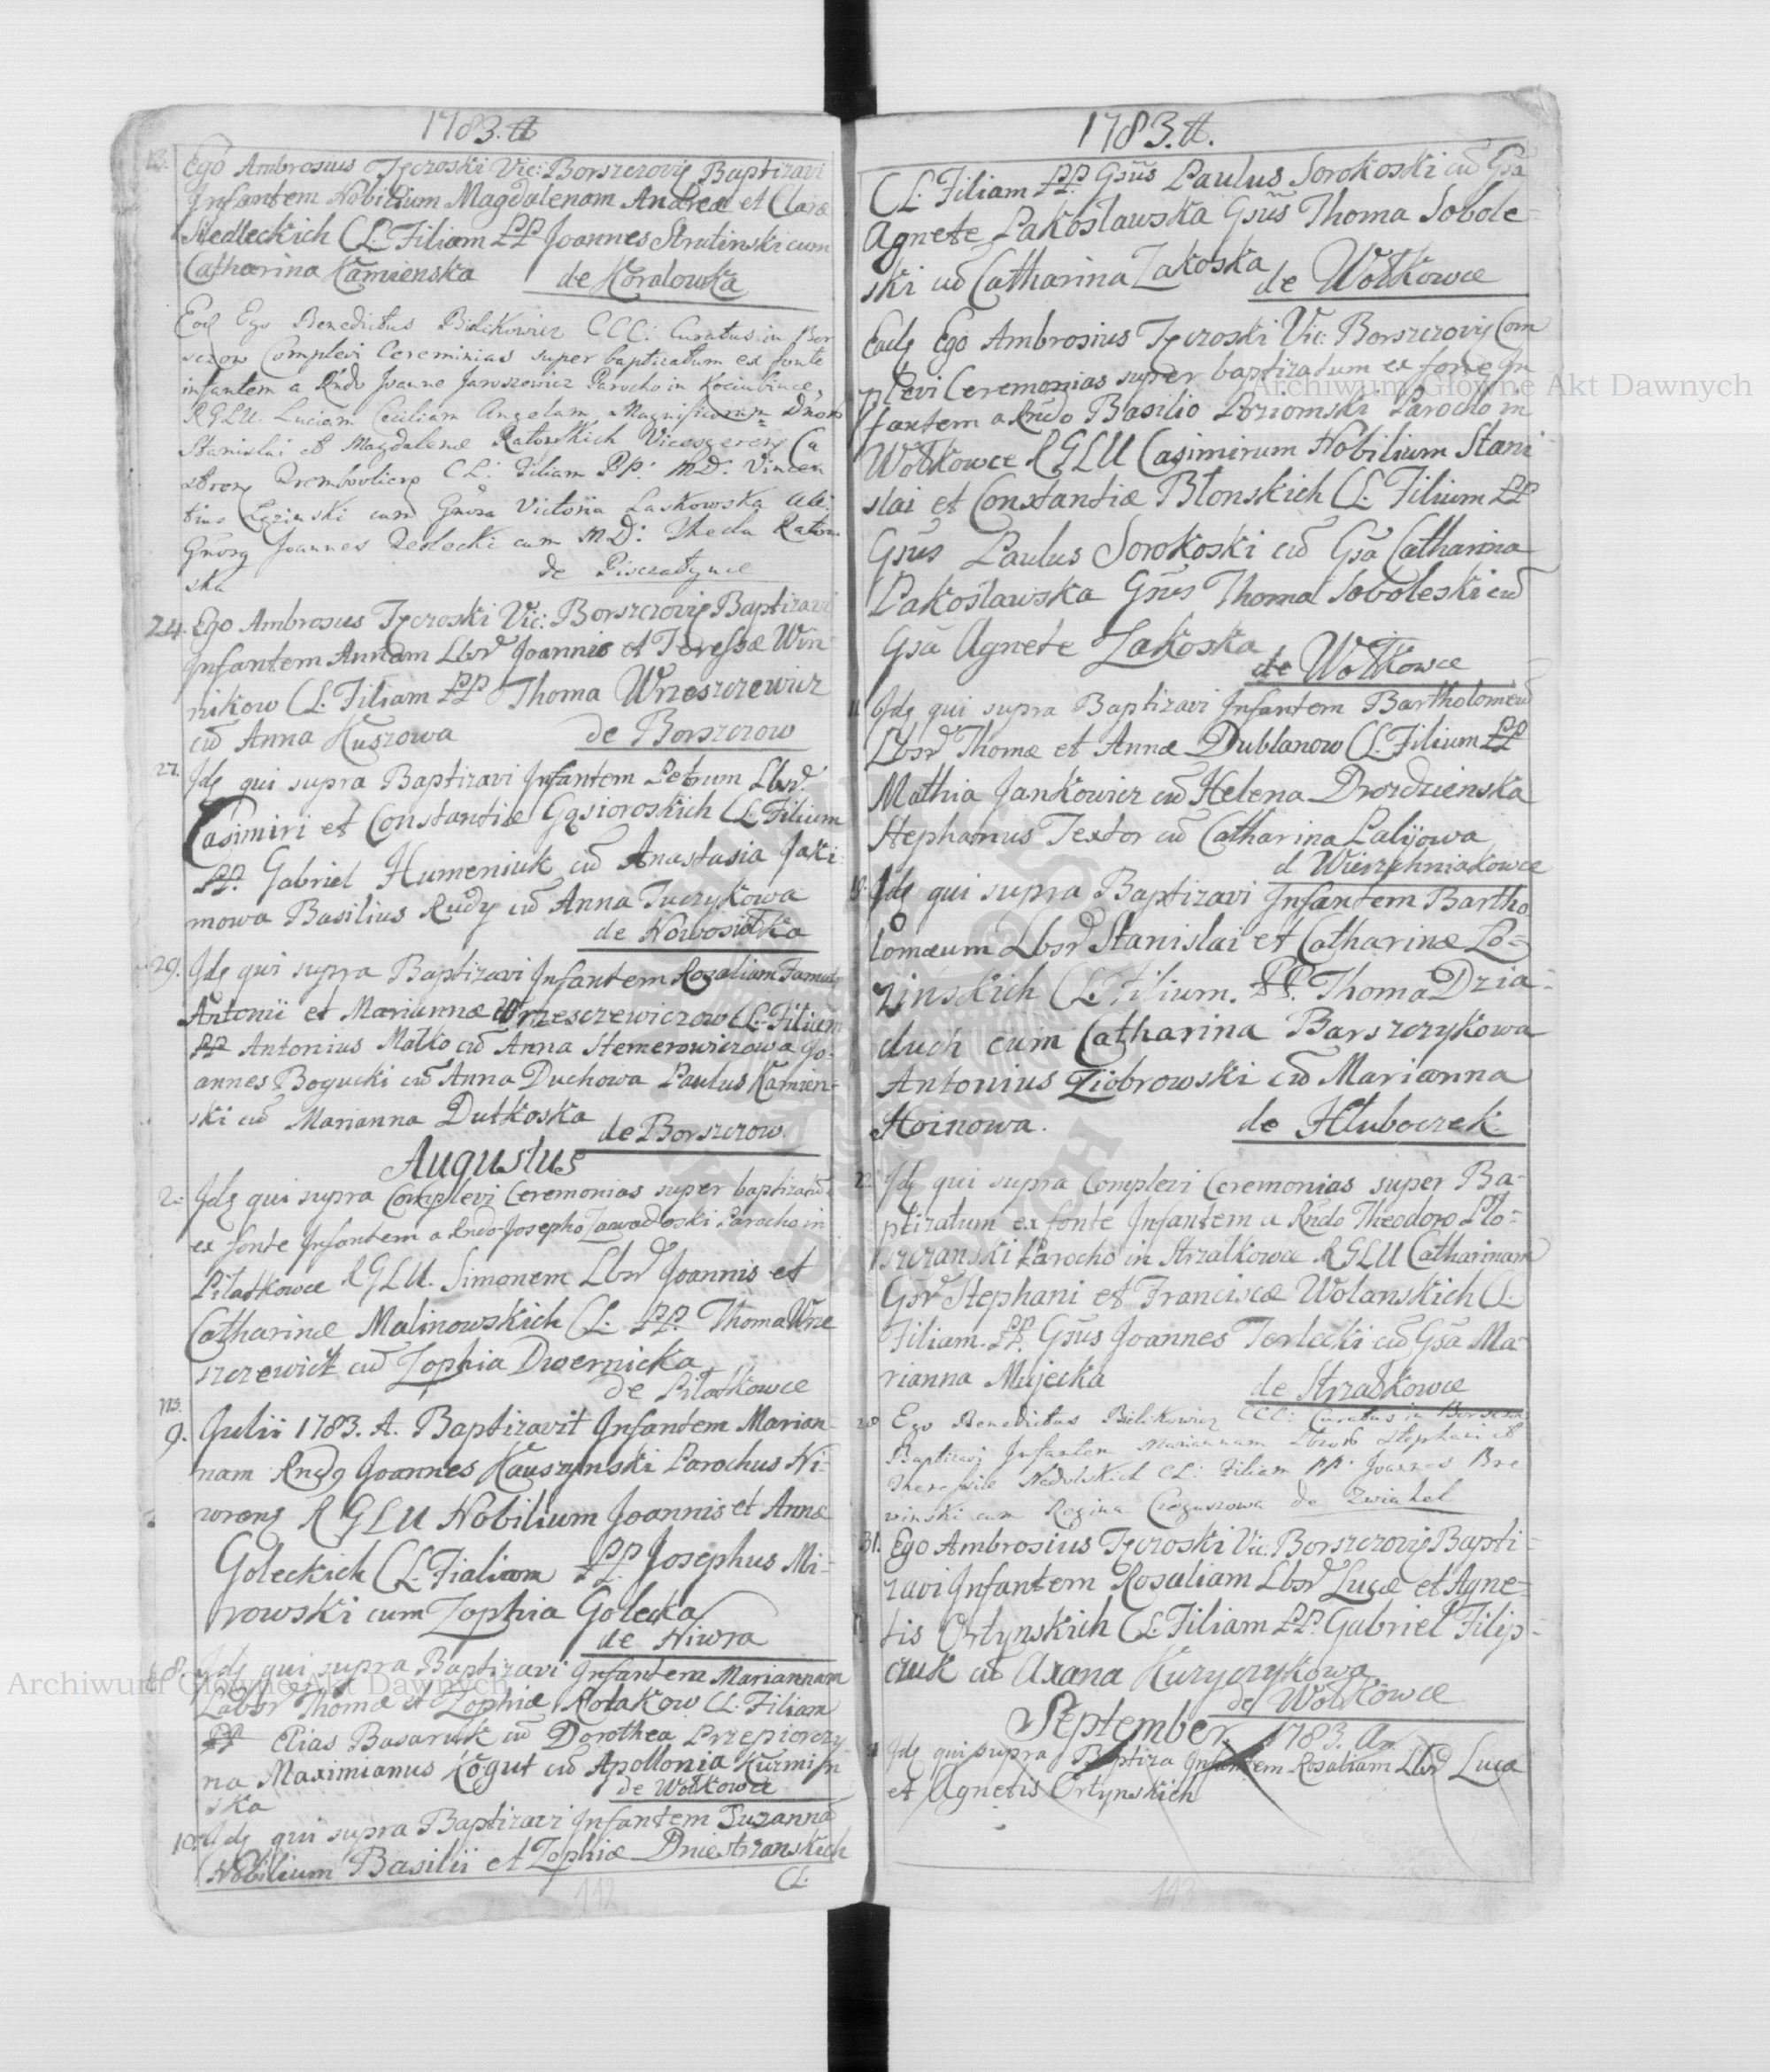 1783. A
13. Ego Ambrosius Tyczoski Vic: Borszczoviẽ Baptizavi
Infantem Nobilium Magdalenam Andreæ et Claræ
Siedleckich CL. Filiam PP Joannes Strutinski cum
Catharina Kamienska de Korolowka
Eod Ego Benedictus Bielikowicz CCC: Curatus in Bor
sczow Complevi Cereminias super baptizatum ex fonte
infantem a Rndo Joanne Jaroszewicz Parocho in Kociubince
RGLU. Luciam Ceciliam Angelam Magnificorum Dnorũ
Stanislai et Magdalenæ Ratowskich Vicesgereng Ca
streng Trembovlieng CL: Filiam PP: MD: Vincen
tius cum Gnosa Victoria Laskowska
Gnosg Joannes Terlecki cum MD: Thecla Ratow
ska de Piszczatynce
24. Ego Ambrosius Tyczoski Vic: Borszczoviẽ Baptizavi
Infantem Annam Lbsr Joannis et Teressæ Win
nikow CL. Filiam PP Thoma Wrzeszczewicz
cũ Anna Kuszowa de Borszczow
27. Jdẽ qui supra Baptizavi Infantem Petrum Lbsr
Casimiri et Constantiæ Gąsioroskich CL. Filium
PP. Gabriel Humeniuk cũ Anastasia Jaki
mowa Basilius Rudy cũ Anna Tuczykowa
de Nowosiołka
29. Jdẽ qui supra Baptizavi Infantem Rozaliam Famat
Antonii et Mariannæ Wrzesczewiczow CL. Filium
PP Antonius Matko cũ Anna Stemerowiczowa Jo-
annes Bogucki cũ Anna Duchowa Paulus Kamien-
ski cũ Marianna Dutkoska
de Borszczow.
Augustus
2. Jdẽ qui supra Complevi Ceremonias super baptizatũ
ex fonte Infantem a Rndo Josepho Zawadoski Parocho in
Piłatkowce RGLU. Simonem Lbsr Joannis et
Catharinæ Malinowskich CL. PP. Thoma Wrze
szczewicz cũ Zophia Dwernicka
de Piłatkowce
9. Julii 1783. A. Baptizavit Infantem Marian-
nam Rndg Joannes Kauszynski Parochus Ni-
wreng RGLU Nobilium Joannis et Annæ
Goleckich CL. Fialiam PP. Josephus Mi-
rowski cum Zophia Golecka
de Niwra
8. Jdẽ qui supra Baptizavi Infantem Mariannam
Labsr Thomæ et Zophiæ Rolakow CL. Filiam
PP Elias Basaruk cũ Dorothea Przepiorczy
na Maximianus Kogut cũ Apollonia Kuzmin
ska de Wołkowce
10. Jdẽ qui supra Baptizavi Infantem Suzannã
Nobilium Basilii et Zophiæ Dniestrzanskich
CL.
112
1783. A.
CL. Filiam PP. Gsũs Paulus Sorokoski cũ Gsã
Agnete Pakosławska Gsũs Thoma Sobole-
ski cũ Catharina Zakoska de Wołkowce
Eadẽ Ego Ambrosius Tyczoski Vic: Borszczoviẽ Com
plevi Ceremonias super baptizatum ex fonte In
fantem a Rndo Basilio Poziomski Parocho in
Wołkowce RGLU Casimirum Nobilium Stani
slai et Constantiæ Blonskich CL. Filium PP
Gsũs Paulus Sorokoski cũ Gsã Catharina
Pakosławska Gsũs Thoma Soboleski cũ
Gsã Agnete Zakoska
de Wołkowce
11 Jdẽ qui supra Baptizavi Infantem Bartholomeũ
Lbsr Thomæ et Annæ Dublanow CL. Filium PP
Mathia Jankowicz cũ Helena Drozdzienska
Stephanus Textor cũ Catharina Palijowa
d Wierzchniakowce
Jdẽ qui supra Baptizavi Infantem Bartho
lomæum Lbsr Stanislai et Catharinæ Ło-
zinskich CL. Filium. PP. Thoma Dzia-
duch cum Catharina Barszczykowa
Antonius Ziobrowski cũ Marianna
Hoinowa. de Hłuboczek
22. Jdẽ qui supra Complevi Ceremonias super Ba-
ptizatum ex fonte Infantem a Rndo Theodoro Pło-
szczanski Parocho in Strzałkowce RGLU Catharinam
Gsr Stephani et Franciscæ Wolanskich CL
Filiam. PP. Gsũs Joannes Terlecki cũ Gsã Ma-
rianna Mujecka de Strzałkowce
28 Ego Benedictus Bielikowicz CCC: Curatus in Borszczow
Baptizavi Infantem Mariannam Stephani et
Theressiæ Nadolskich CL: Filiam PP: Joannes Bre
winski cum Regina Czeguszowa de Zwiahel
31. Ego Ambrosius Tyczoski Vic. Borszczoviẽ Bapti-
zavi Infantem Rosaliam Lbsr Lucæ et Agne-
tis Ortynskich CL. Filiam PP. Gabriel Filip-
czuk cũ Axana Kuryczykowa
de Wołkowce
September. 1783. An.
Jdẽ qui supra Baptiza Infantem Rosaliam Lbsr Lucæ
et Agnetis Ortynskich
113
Archiwum Główne Akt Dawnych
Archiwum Główne Akt Dawnych